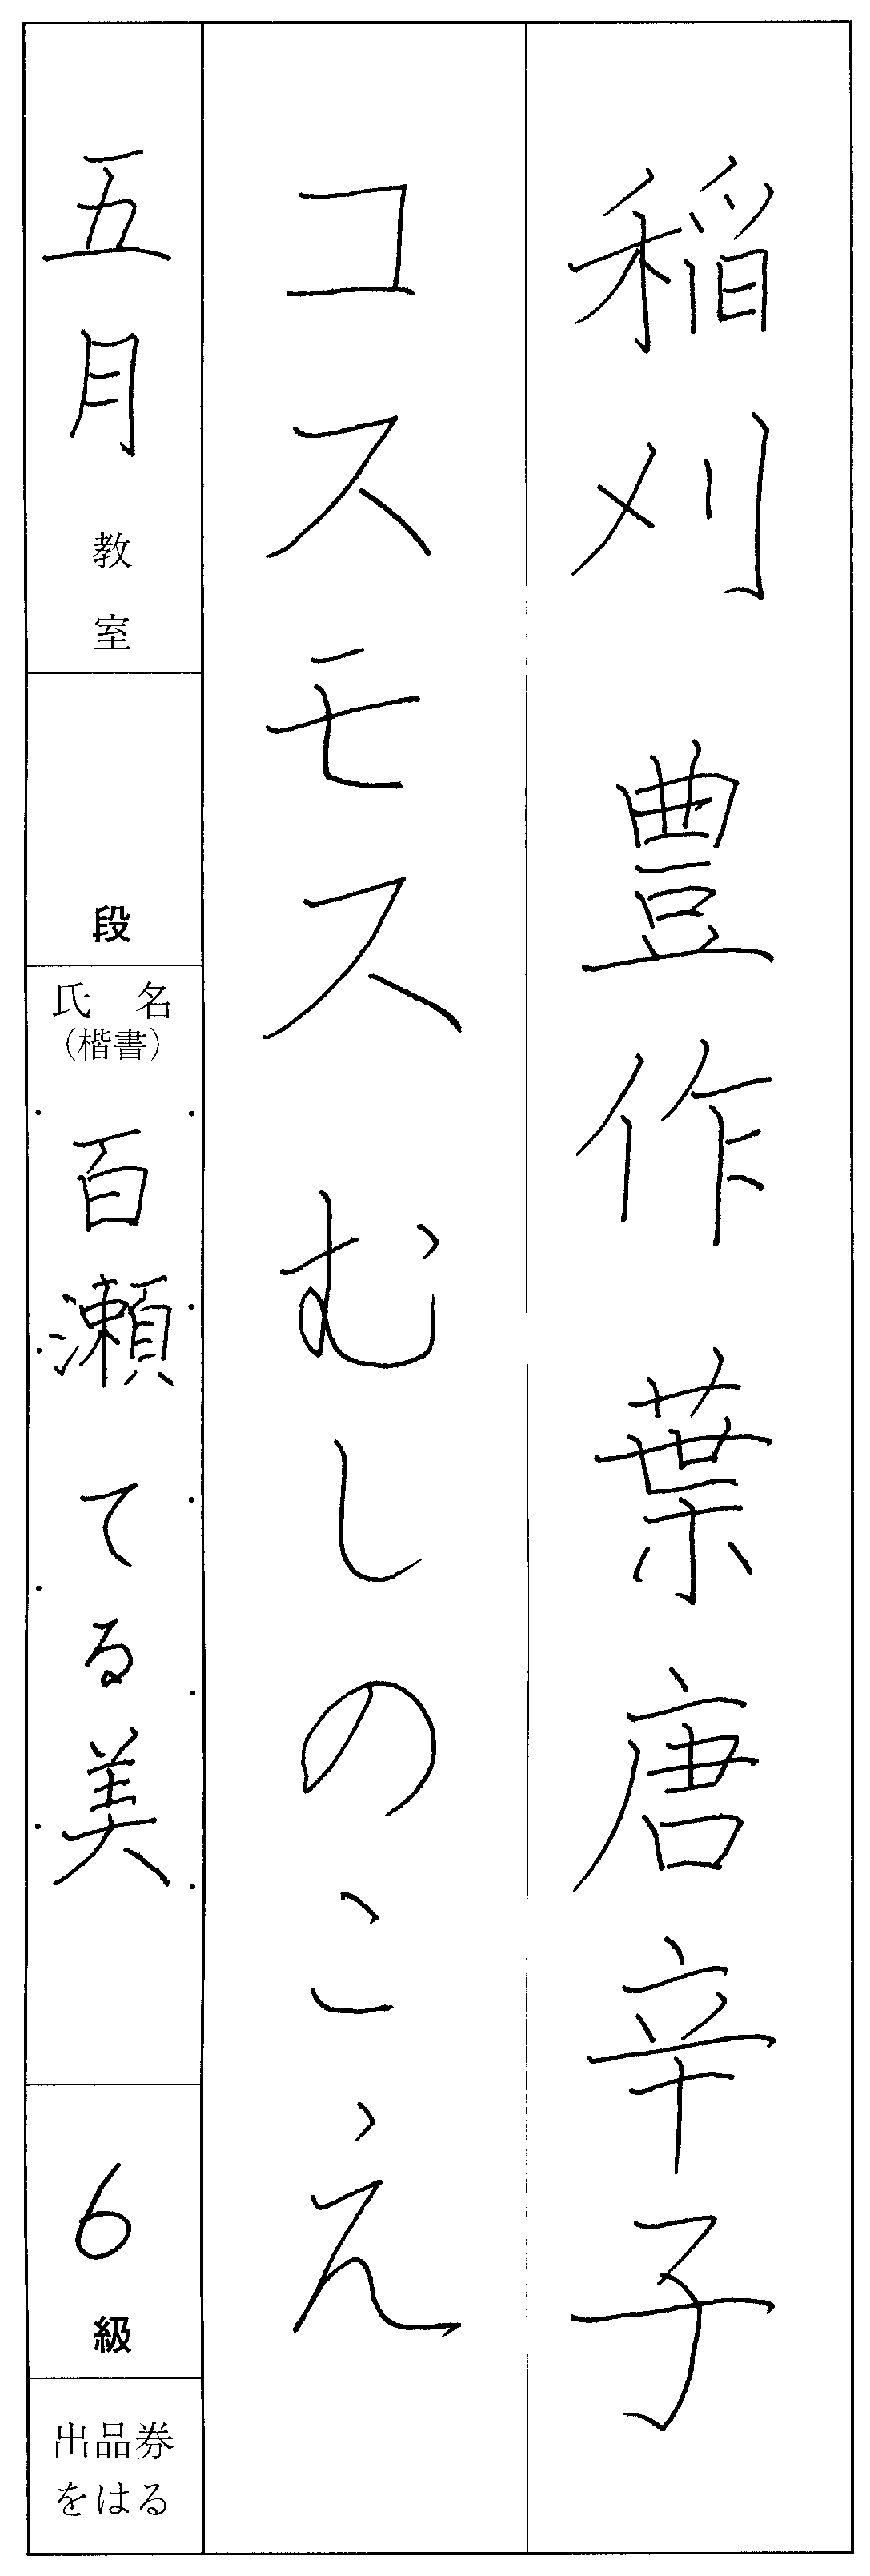 稲刈 豊作 葉唐辛子
コスモス むしのこえ
五月 教室
段
氏 名
(楷書)
百瀬 てる美
6 級
出品券
をはる